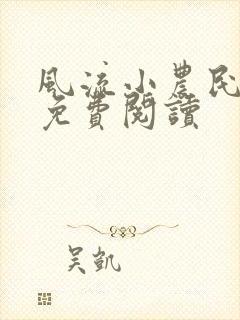 風流小農民
免費閱讀
吴凱